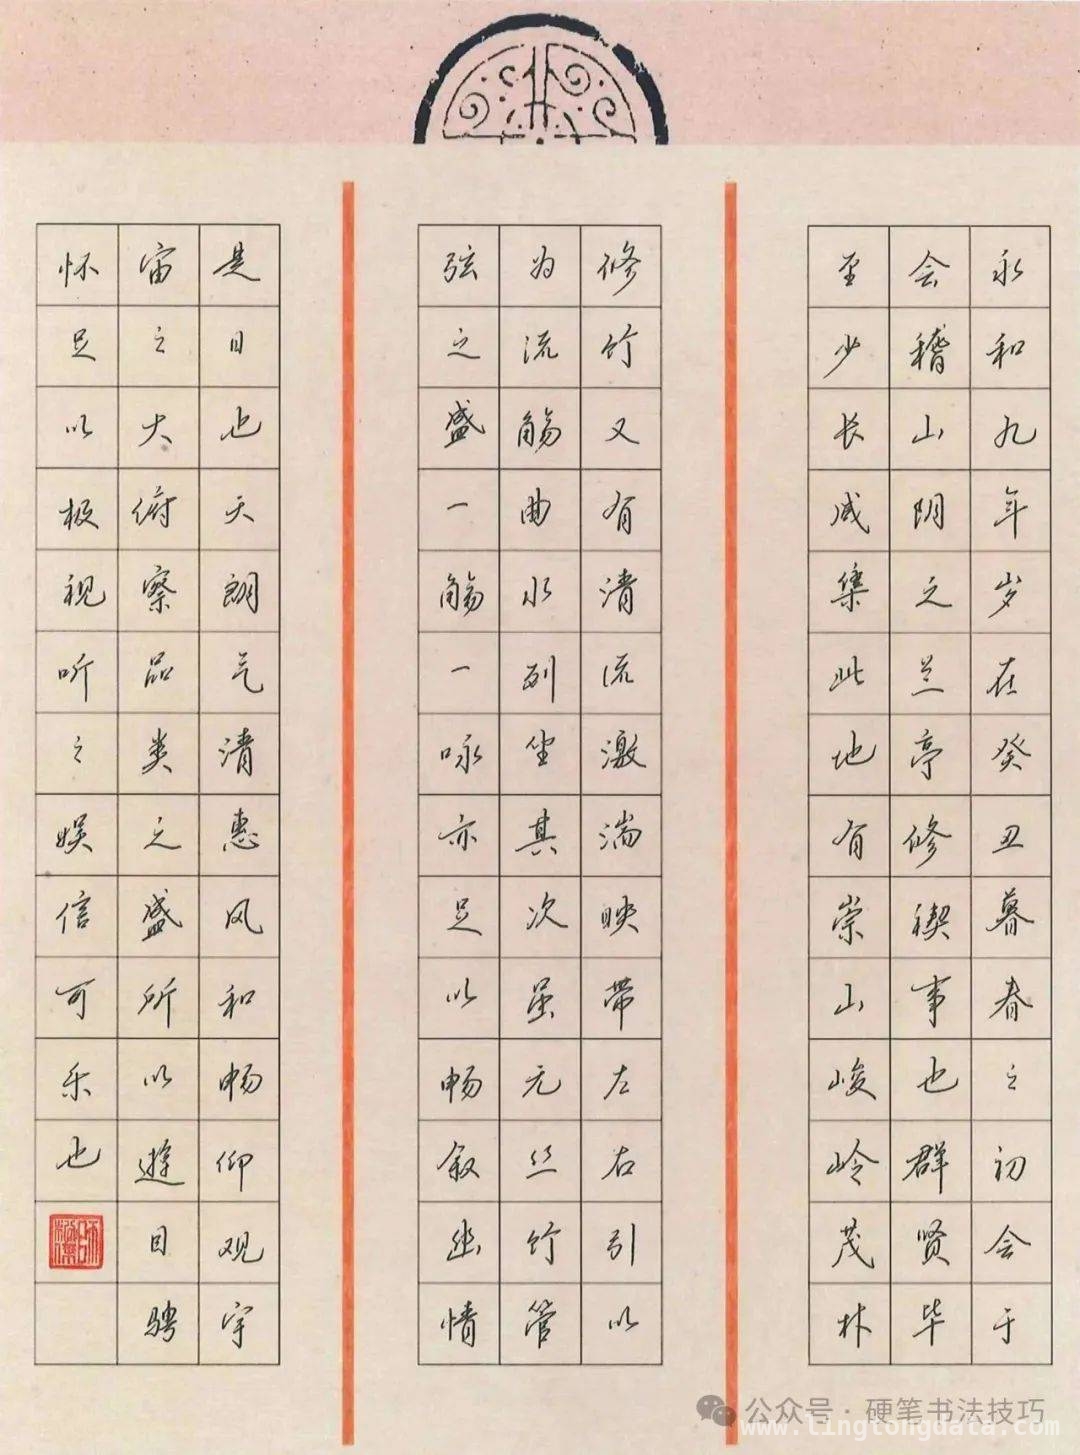 永和九年岁在癸丑暮春之初会于
会稽山阴之兰亭修禊事也群贤毕
至少长咸集此地有崇山峻岭茂林
修竹又有清流激湍映带左右引以
为流觞曲水列坐其次虽无丝竹管
弦之盛一觞一咏亦足以畅叙幽情
是日也天朗气清惠风和畅仰观宇
宙之大俯察品类之盛所以游目骋
怀足以极视听之娱信可乐也
公众号·硬笔书法技巧
www.lingtongdata.com